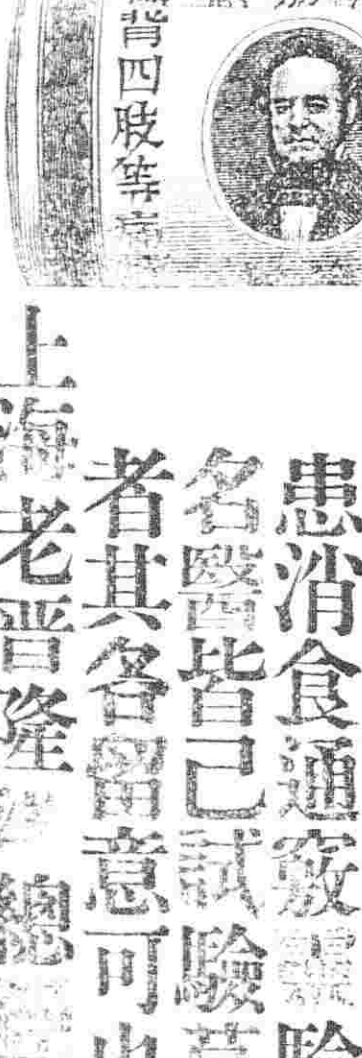 背四肢等痛
患消食通竅
名醫皆已試驗
者其各留意可
上海老晋隆 總